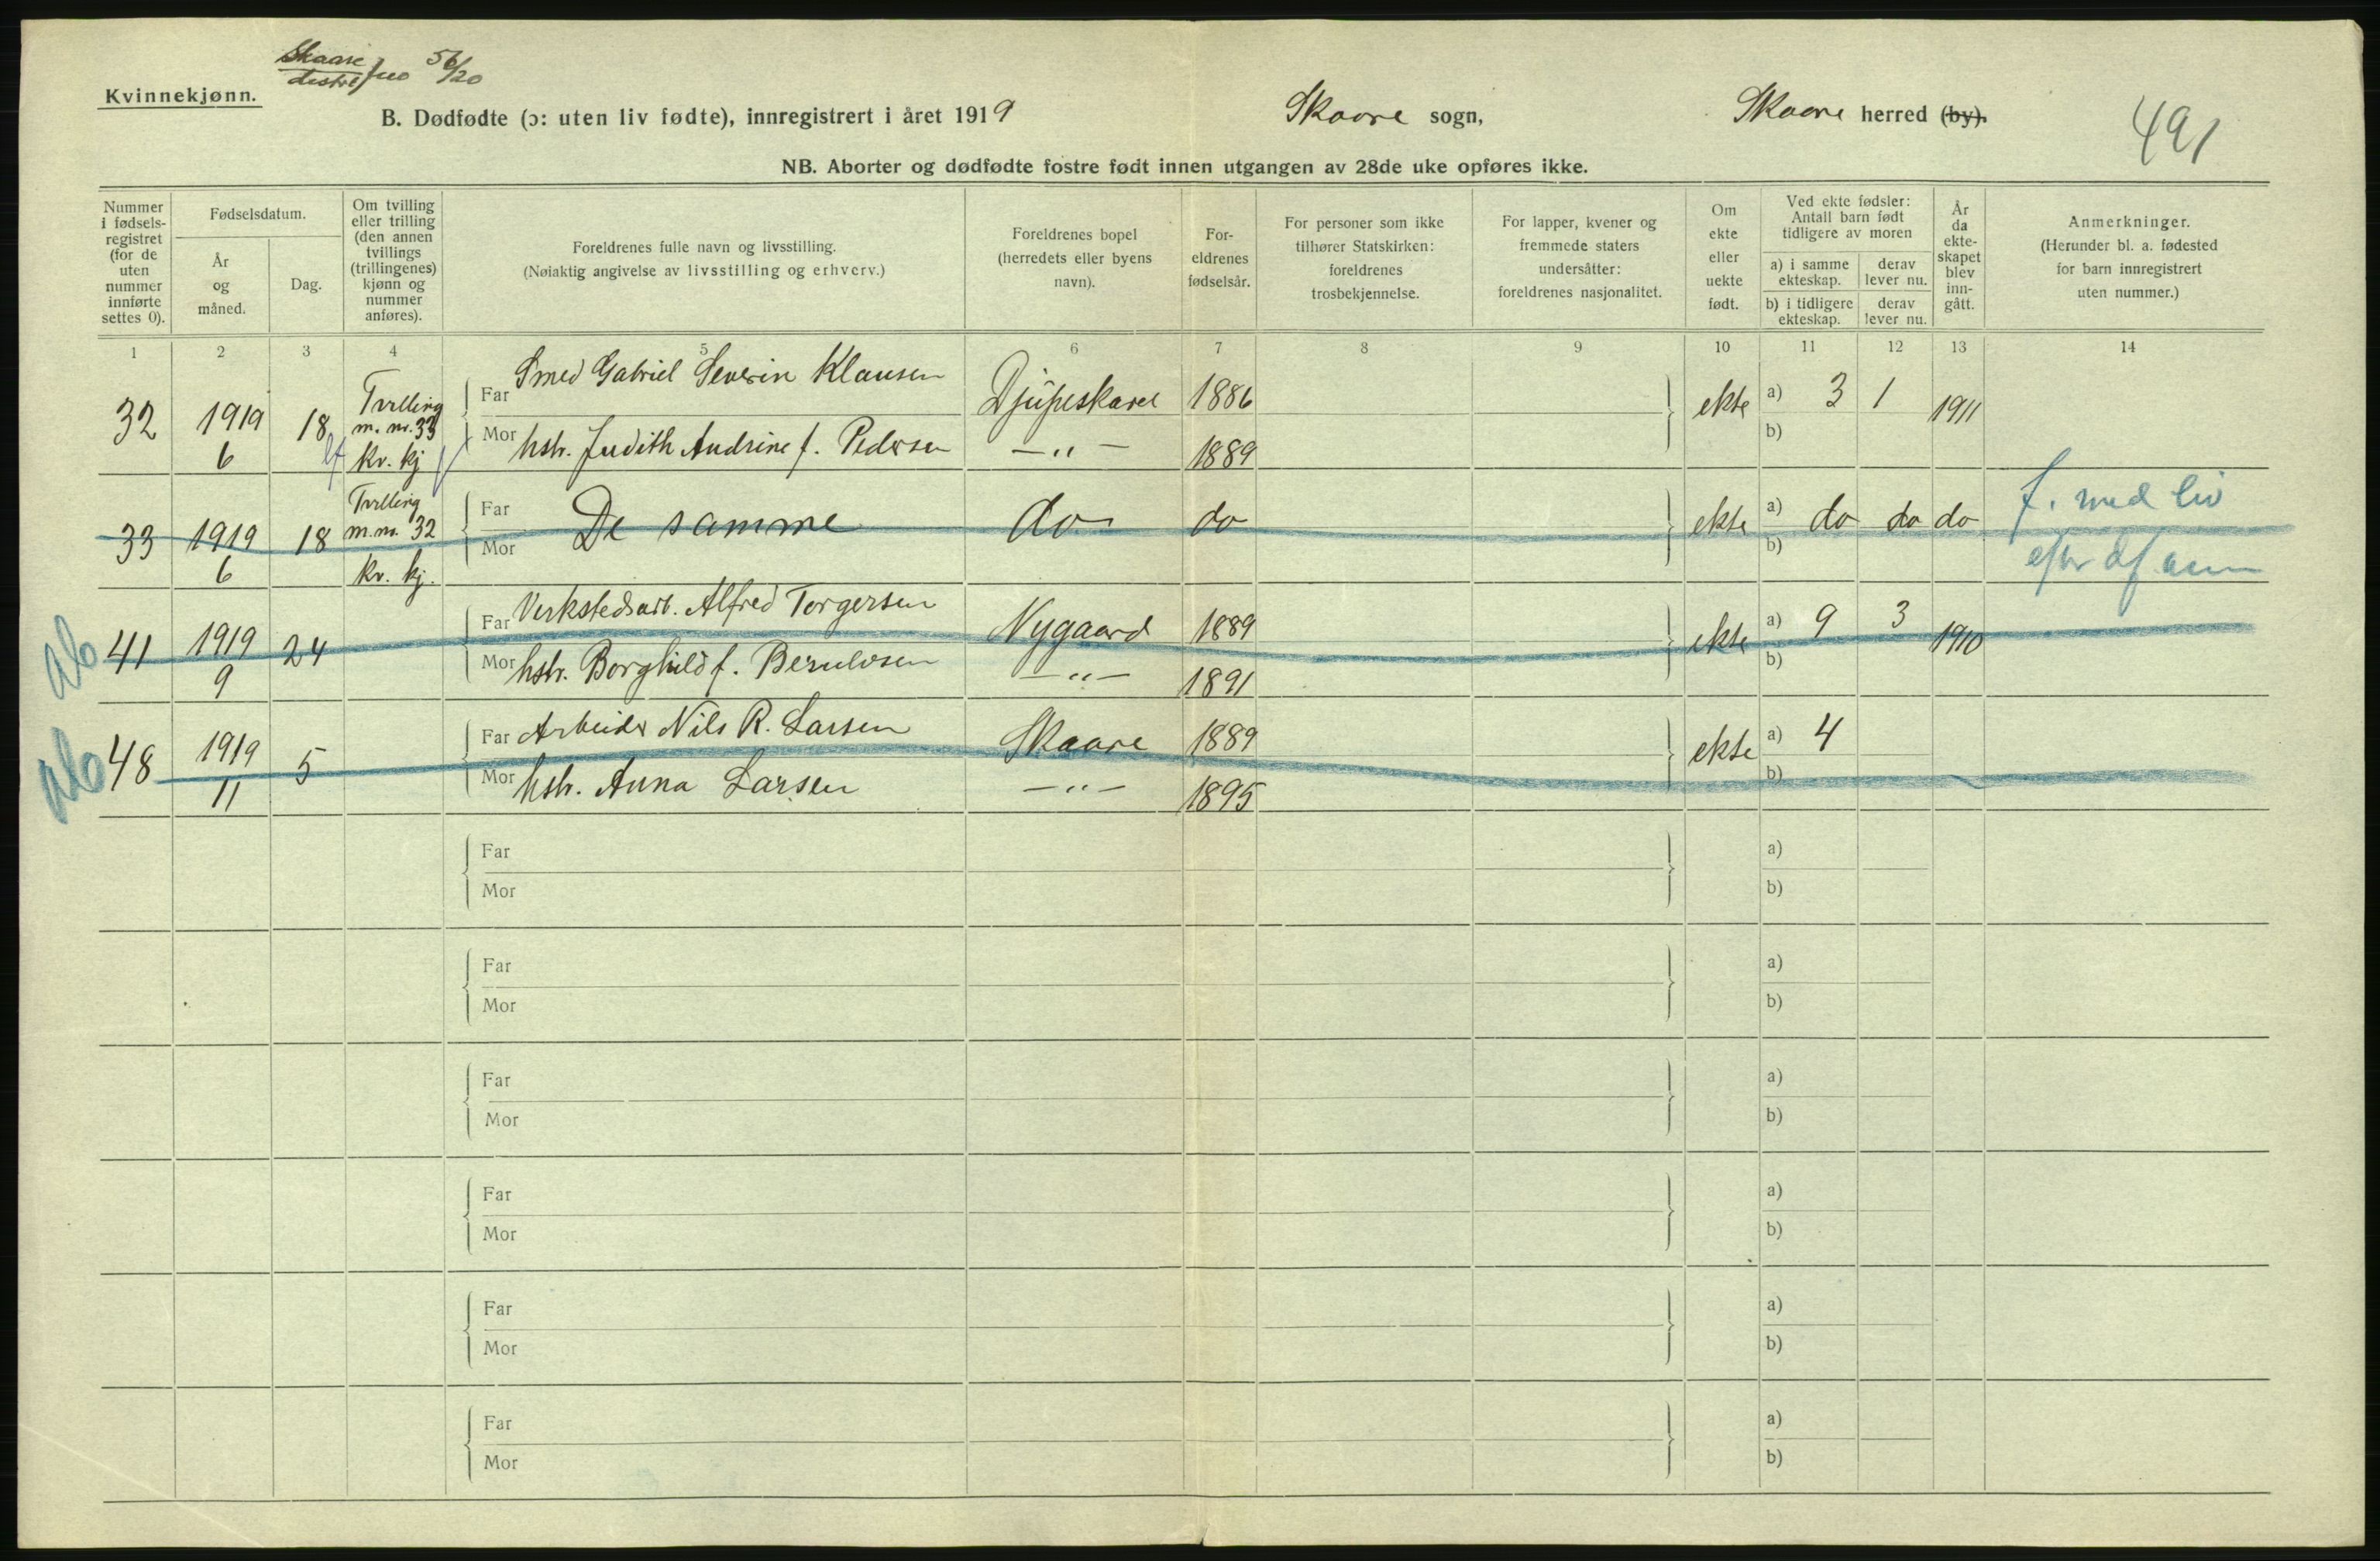 Skaare
Kvinnekjønn.
B. Dødfødte (ɔ: uten liv fødte), innregistrert i året 1919 Skaare sogn, Skaare herred (by).
491
NB. Aborter og dødfødte fostre født innen utgangen av 28de uke opføres ikke.
Nummer
i fødsels-
registret
(for de
uten
nummer
innførte
settes 0).
Fødselsdatum.
År
og
måned.
Dag.
Om tvilling
eller trilling
(den annen
tvillings
(trillingenes)
kjønn og
nummer
anføres).
Foreldrenes fulle navn og livsstilling.
(Nøiaktig angivelse av livsstilling og erhverv.)
Foreldrenes bopel
(herredets eller byens
navn).
For-
eldrenes
fødselsår.
For personer som ikke
tilhører Statskirken:
foreldrenes
trosbekjennelse.
For lapper, kvener og
fremmede staters
undersåtter:
foreldrenes nasjonalitet.
Om
ekte
eller
uekte
født.
Ved ekte fødsler:
Antall barn født
tidligere av moren
a) i samme
ekteskap.
derav
lever nu.
b) i tidligere
ekteskap.
derav
lever nu.
År
da
ekte-
skapet
blev
inn-
gått.
Anmerkninger.
(Herunder bl. a. fødested
for barn innregistrert
uten nummer.)
1 2 3 4 5 6 7 8 9 10 11 12 13 14
32 1919 6 18 Tvilling
m. nr. 33
kv. kj
Far Smed Gabriel Severin Klausen Djupeskaret 1886 ekte a) 3 1 1911
Mor hstr. Judith Andrine f. Pedersen —"— 1889 b)
33 1919 6 18 Tvilling
m. nr. 32
kv. kj.
Far De samme do do ekte a) do do do f. med liv
Mor b)
41 1919 9 24
Far Verkstedsarb. Alfred Torgersen Nygaard 1889 ekte a) 9 3 1910
Mor hstr. Borghild f. —"— 1891 b)
48 1919 11 5
Far Arbeider Nils R. Larsen Skaare 1889 ekte a) 4
Mor hstr. Anna Larsen —"— 1895 b)
Far a)
Mor b)
Far a)
Mor b)
Far a)
Mor b)
Far a)
Mor b)
Far a)
Mor b)
Far a)
Mor b)